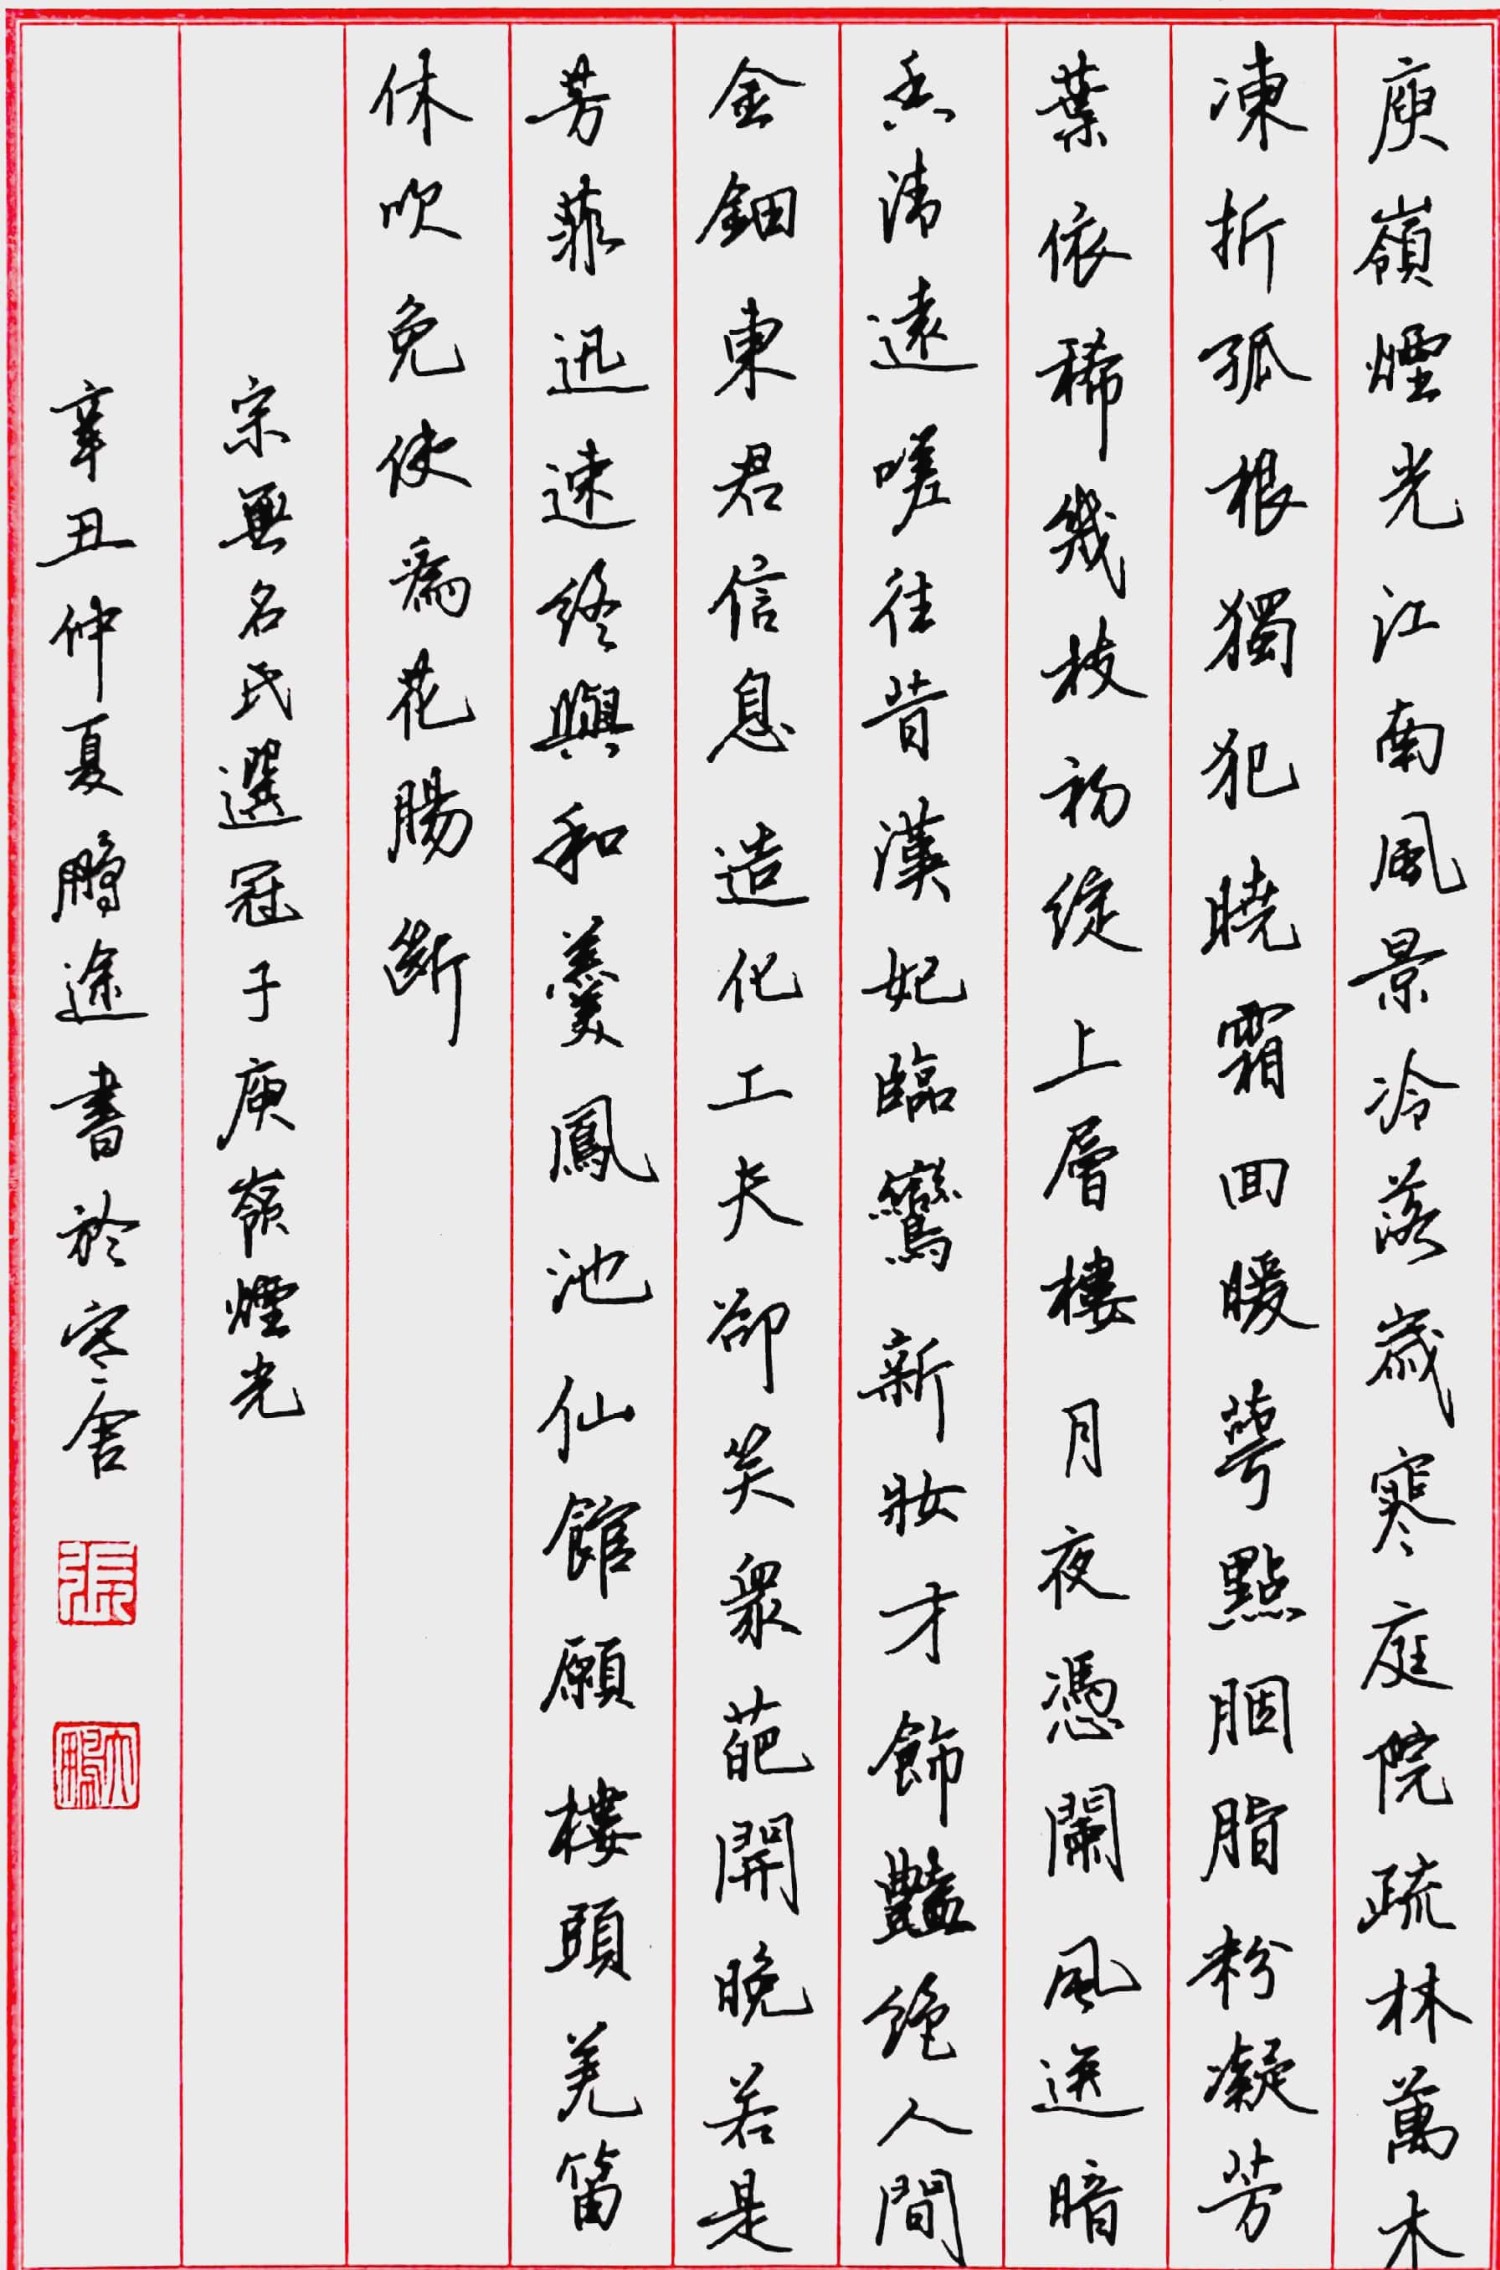 庾嶺煙光江南風景冷落歲寒庭院疏林萬木
凍折孤根獨犯曉霜回暖萼點胭脂粉凝芳
葉依稀幾枝初綻上層樓月夜憑闌風送暗
香清遠嗟往昔漢妃臨鸞新妝才飾豔絕人間
金鈿東君信息造化工夫卻笑衆葩開晚若是
芳菲迅速終與和羹鳳池仙館願樓頭羌笛
休吹免使爲花腸斷
宗無名氏選冠子庾嶺煙光
辛丑仲夏鵬途書於寒舍
張